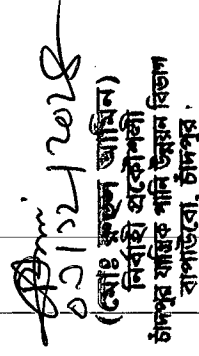 (মোঃ রুহুল আমিন)
নির্বাহী প্রকৌশলী
চাঁদপুর যান্ত্রিক পানি উন্নয়ন বিভাগ
বাপাউবো, চাঁদপুর।